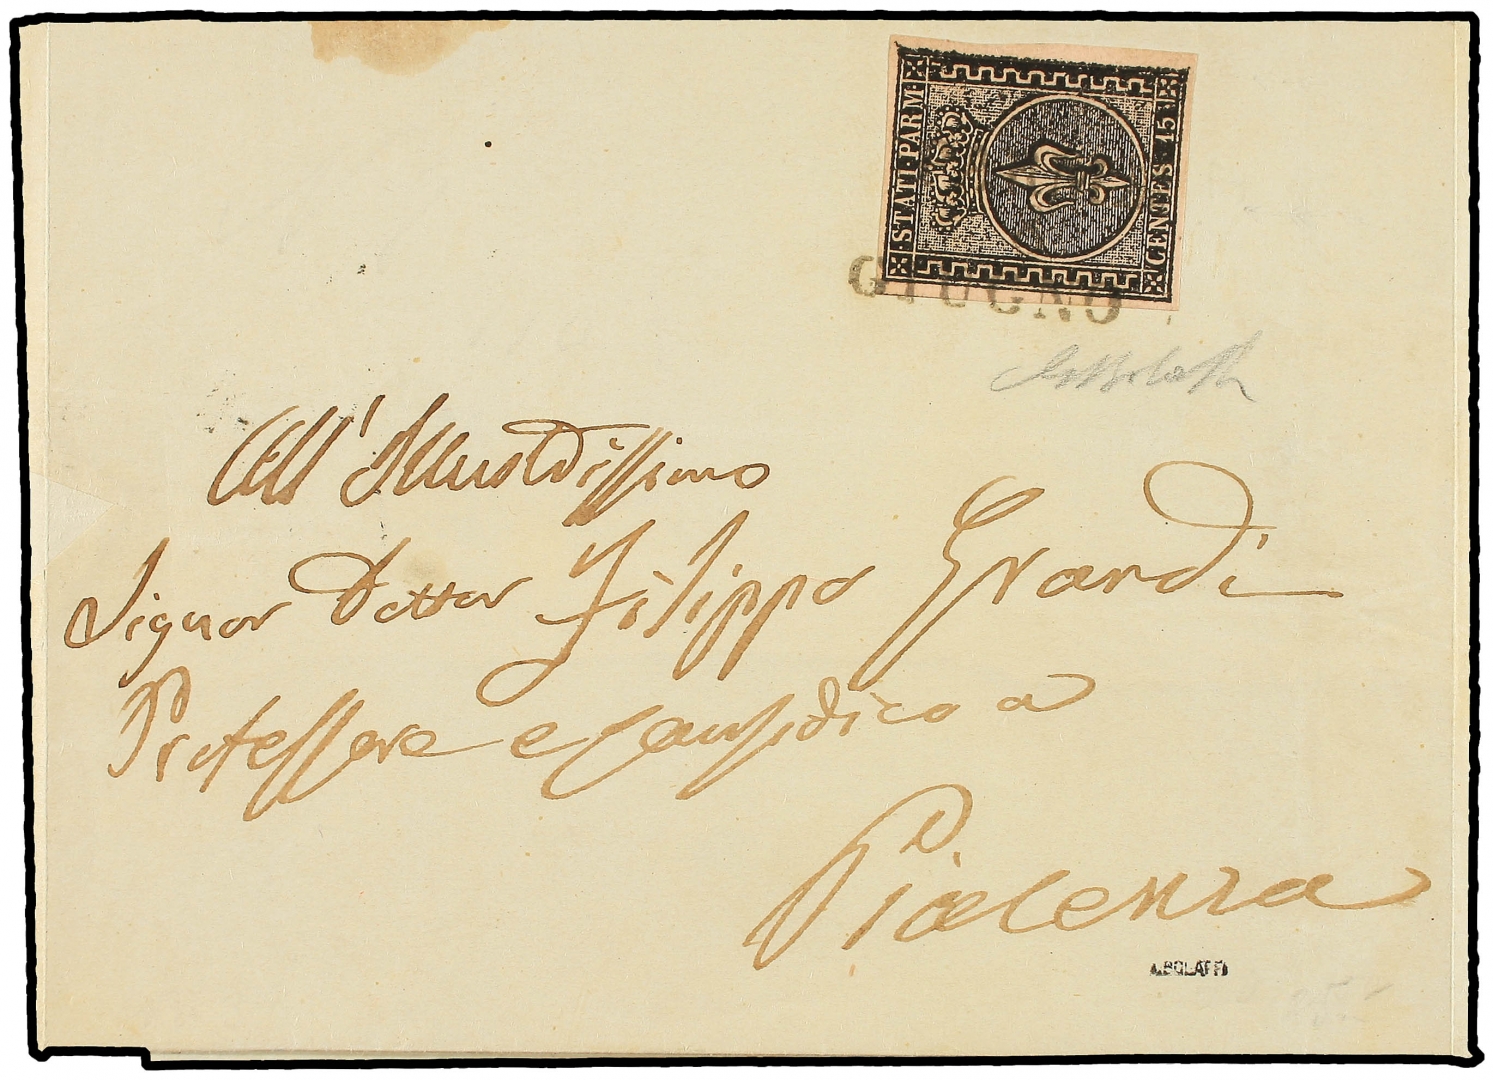 STATI PARM
CENTES 15
GIUGNO
All' Illustrissimo
Signor Dottor Filippo Grandi
Professore e Causidico a
Piacenza
A.BOLAFFI